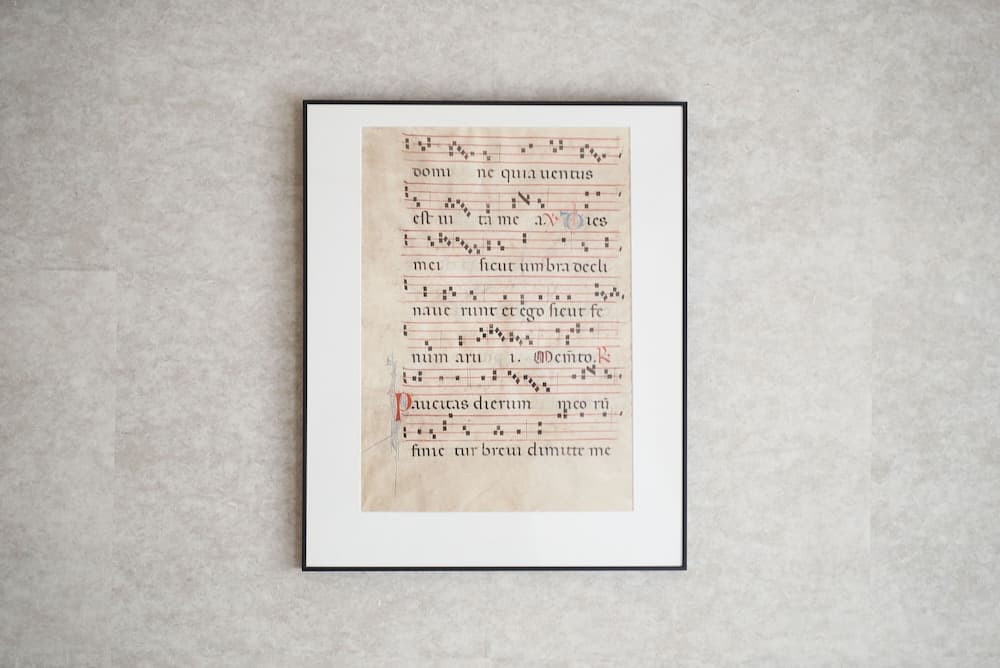 domi ne quia uentus
est ui ta me a. V. Dies
mei sicut umbra decli
naue runt et ego sicut fe
num aru i. Mem̃to. R.
Paucitas dierum meo rũ
finie tur breui dimitte me